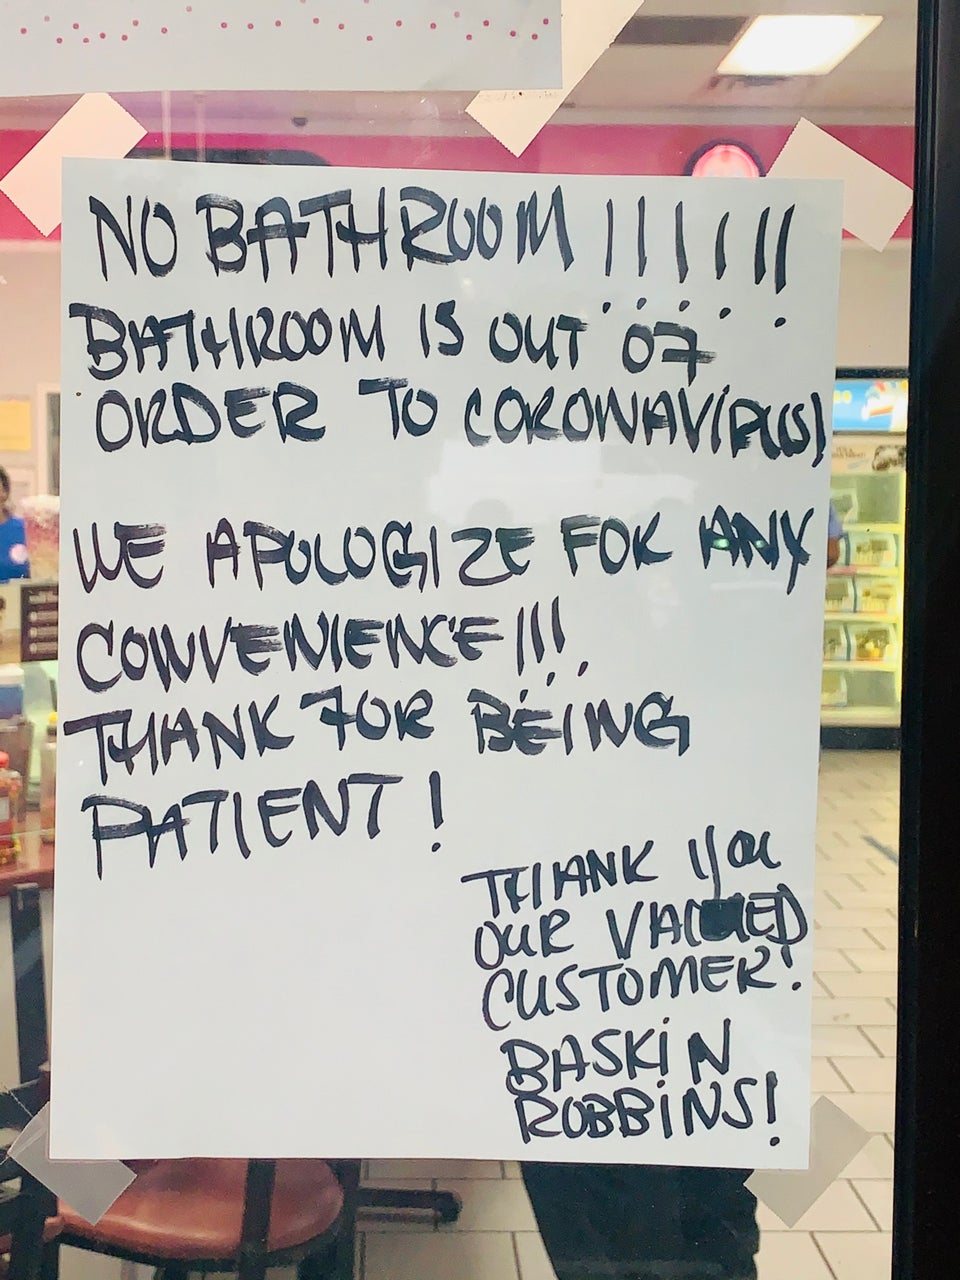 NO BATHROOM !!!!!!
BATHROOM IS OUT OF
ORDER TO CORONAVIRUS!
WE APOLOGIZE FOR ANY
CONVENIENCE!!!
THANK FOR BEING
PATIENT!
THANK YOU
OUR VALUED
CUSTOMER!
BASKIN
ROBBINS!